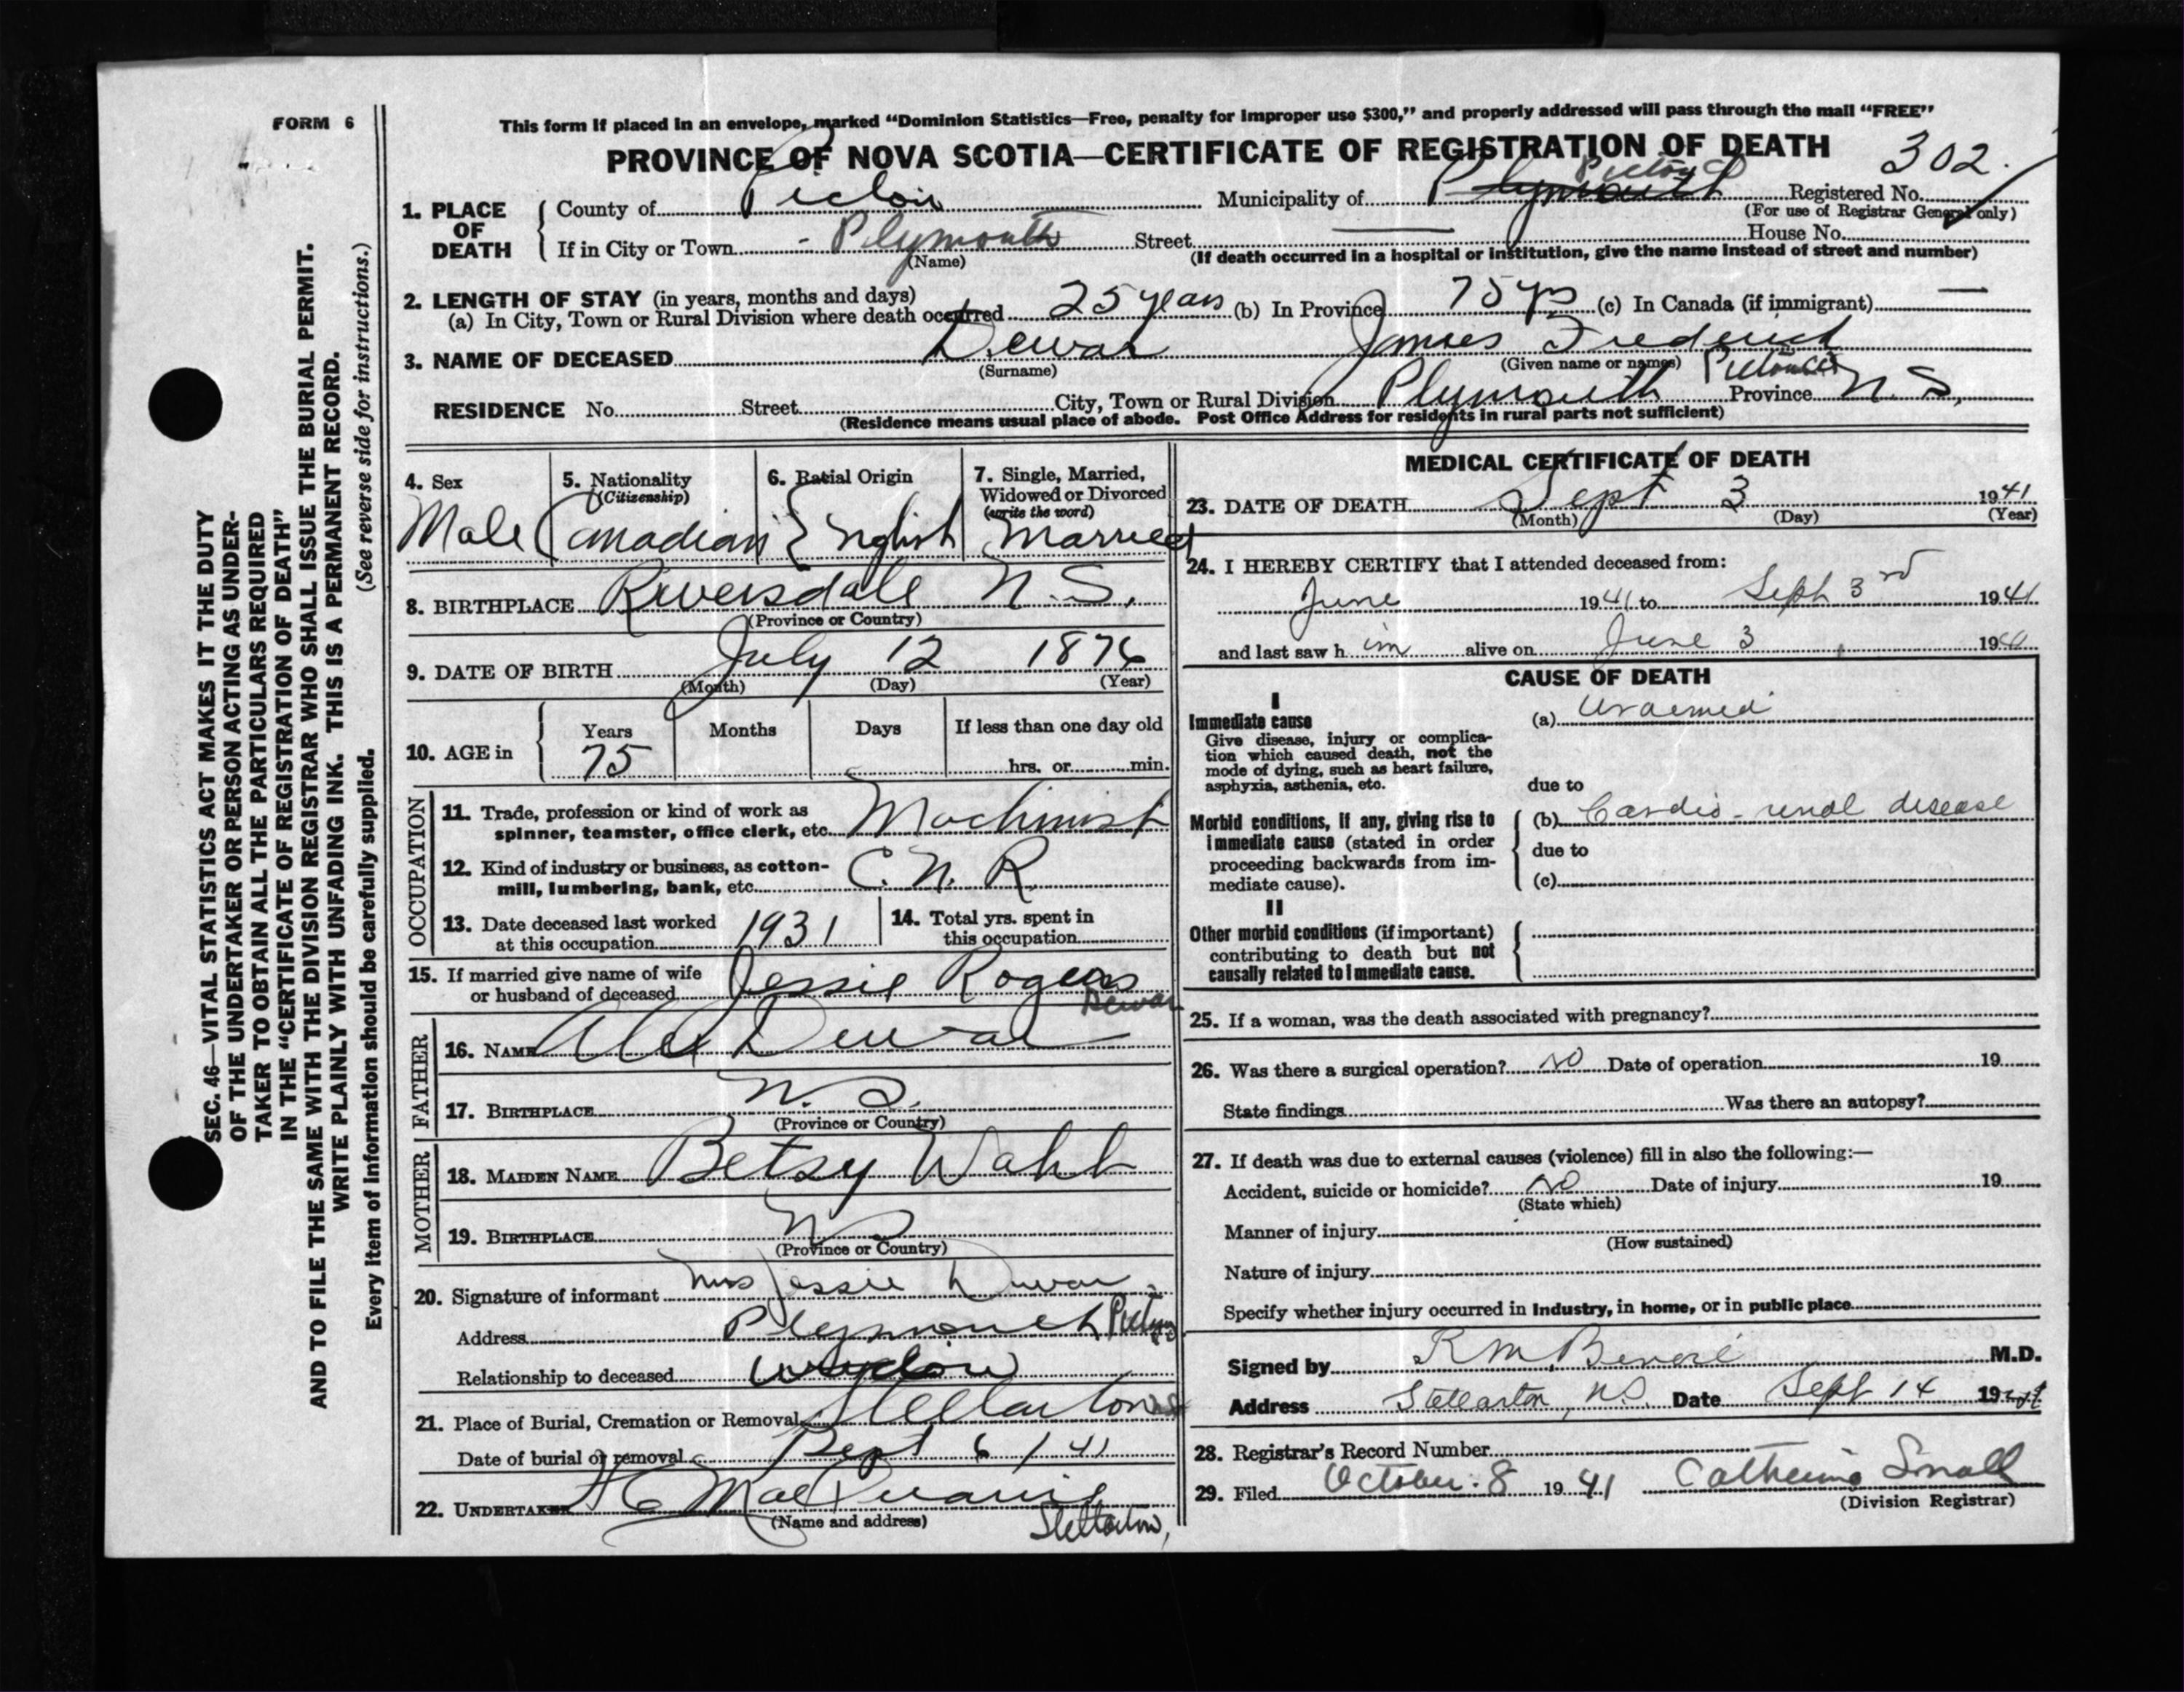 FORM 6
This form if placed in an envelope, marked “Dominion Statistics—Free, penalty for improper use $300,” and properly addressed will pass through the mail “FREE”
PROVINCE OF NOVA SCOTIA—CERTIFICATE OF REGISTRATION OF DEATH
302.
1. PLACE OF DEATH
County of Pictou Municipality of Plymouth Pictou Co Registered No.
(For use of Registrar General only)
If in City or Town - Plymouth Street House No.
(Name) (If death occurred in a hospital or institution, give the name instead of street and number)
2. LENGTH OF STAY (in years, months and days)
(a) In City, Town or Rural Division where death occurred 25 years (b) In Province 75 yrs (c) In Canada (if immigrant) —
3. NAME OF DECEASED Dewar James Frederick
(Surname) (Given name or names)
RESIDENCE No. Street City, Town or Rural Division Plymouth Pictou Co Province N.S,
(Residence means usual place of abode. Post Office Address for residents in rural parts not sufficient)
4. Sex
Male
5. Nationality
(Citizenship)
Canadian
6. Racial Origin
English
7. Single, Married,
Widowed or Divorced
(write the word)
Married
8. BIRTHPLACE Riversdale N.S.
(Province or Country)
9. DATE OF BIRTH July 12 1876
(Month) (Day) (Year)
10. AGE in
Years Months Days If less than one day old
75 hrs. or min.
OCCUPATION
11. Trade, profession or kind of work as
spinner, teamster, office clerk, etc. Machinist
12. Kind of industry or business, as cotton-
mill, lumbering, bank, etc. C.N.R.
13. Date deceased last worked
at this occupation 1931
14. Total yrs. spent in
this occupation
15. If married give name of wife
or husband of deceased Jessie Rogers
Dewar
FATHER
16. NAME Alex Dewar
17. BIRTHPLACE N.S.
(Province or Country)
MOTHER
18. MAIDEN NAME Betsy
19. BIRTHPLACE N S
(Province or Country)
20. Signature of informant Mrs Jessie Dewar
Address Plymouth Pictou
Relationship to deceased widow
21. Place of Burial, Cremation or Removal Stellarton NS
Date of burial or removal Sept 6 / 41
22. UNDERTAKER
(Name and address) Stellarton,
MEDICAL CERTIFICATE OF DEATH
23. DATE OF DEATH Sept 3 1941
(Month) (Day) (Year)
24. I HEREBY CERTIFY that I attended deceased from:
June 1941 to Sept 3rd 1941
and last saw him alive on June 3 1941
CAUSE OF DEATH
I
Immediate cause
Give disease, injury or complica-
tion which caused death, not the
mode of dying, such as heart failure,
asphyxia, asthenia, etc.
(a) Uraemia
due to
Morbid conditions, if any, giving rise to
immediate cause (stated in order
proceeding backwards from im-
mediate cause).
(b) Cardio-renal disease
due to
(c)
II
Other morbid conditions (if important)
contributing to death but not
causally related to immediate cause.
25. If a woman, was the death associated with pregnancy?
26. Was there a surgical operation? NO Date of operation 19
State findings Was there an autopsy?
27. If death was due to external causes (violence) fill in also the following:—
Accident, suicide or homicide? NO Date of injury 19
(State which)
Manner of injury
(How sustained)
Nature of injury
Specify whether injury occurred in industry, in home, or in public place
Signed by R M M.D.
Address Stellarton, N.S. Date Sept 14 1941
28. Registrar's Record Number
29. Filed October. 8 1941 Catherine Small
(Division Registrar)
SEC. 46—VITAL STATISTICS ACT MAKES IT THE DUTY
OF THE UNDERTAKER OR PERSON ACTING AS UNDER-
TAKER TO OBTAIN ALL THE PARTICULARS REQUIRED
IN THE “CERTIFICATE OF REGISTRATION OF DEATH”
AND TO FILE THE SAME WITH THE DIVISION REGISTRAR WHO SHALL ISSUE THE BURIAL PERMIT.
WRITE PLAINLY WITH UNFADING INK. THIS IS A PERMANENT RECORD.
(See reverse side for instructions.)
Every item of information should be carefully supplied.